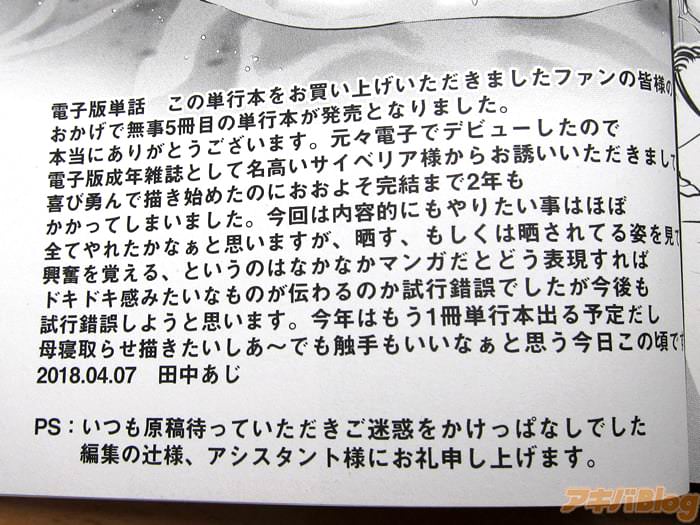 電子版単話　この単行本をお買い上げいただきましたファンの皆様の
おかげで無事5冊目の単行本が発売となりました。
本当にありがとうございます。元々電子でデビューしたので
電子版成年雑誌として名高いサイベリア様からお誘いいただきまして
喜び勇んで描き始めたのにおおよそ完結まで2年も
かかってしまいました。今回は内容的にもやりたい事はほぼ
全てやれたかなぁと思いますが、晒す、もしくは晒されてる姿を見て
興奮を覚える、というのはなかなかマンガだとどう表現すれば
ドキドキ感みたいなものが伝わるのか試行錯誤でしたが今後も
試行錯誤しようと思います。今年はもう1冊単行本出る予定だし
母寝取らせ描きたいしあ～でも触手もいいなぁと思う今日この頃です
2018.04.07　田中あじ
PS：いつも原稿待っていただきご迷惑をかけっぱなしでした
編集の辻様、アシスタント様にお礼申し上げます。
アキバBlog